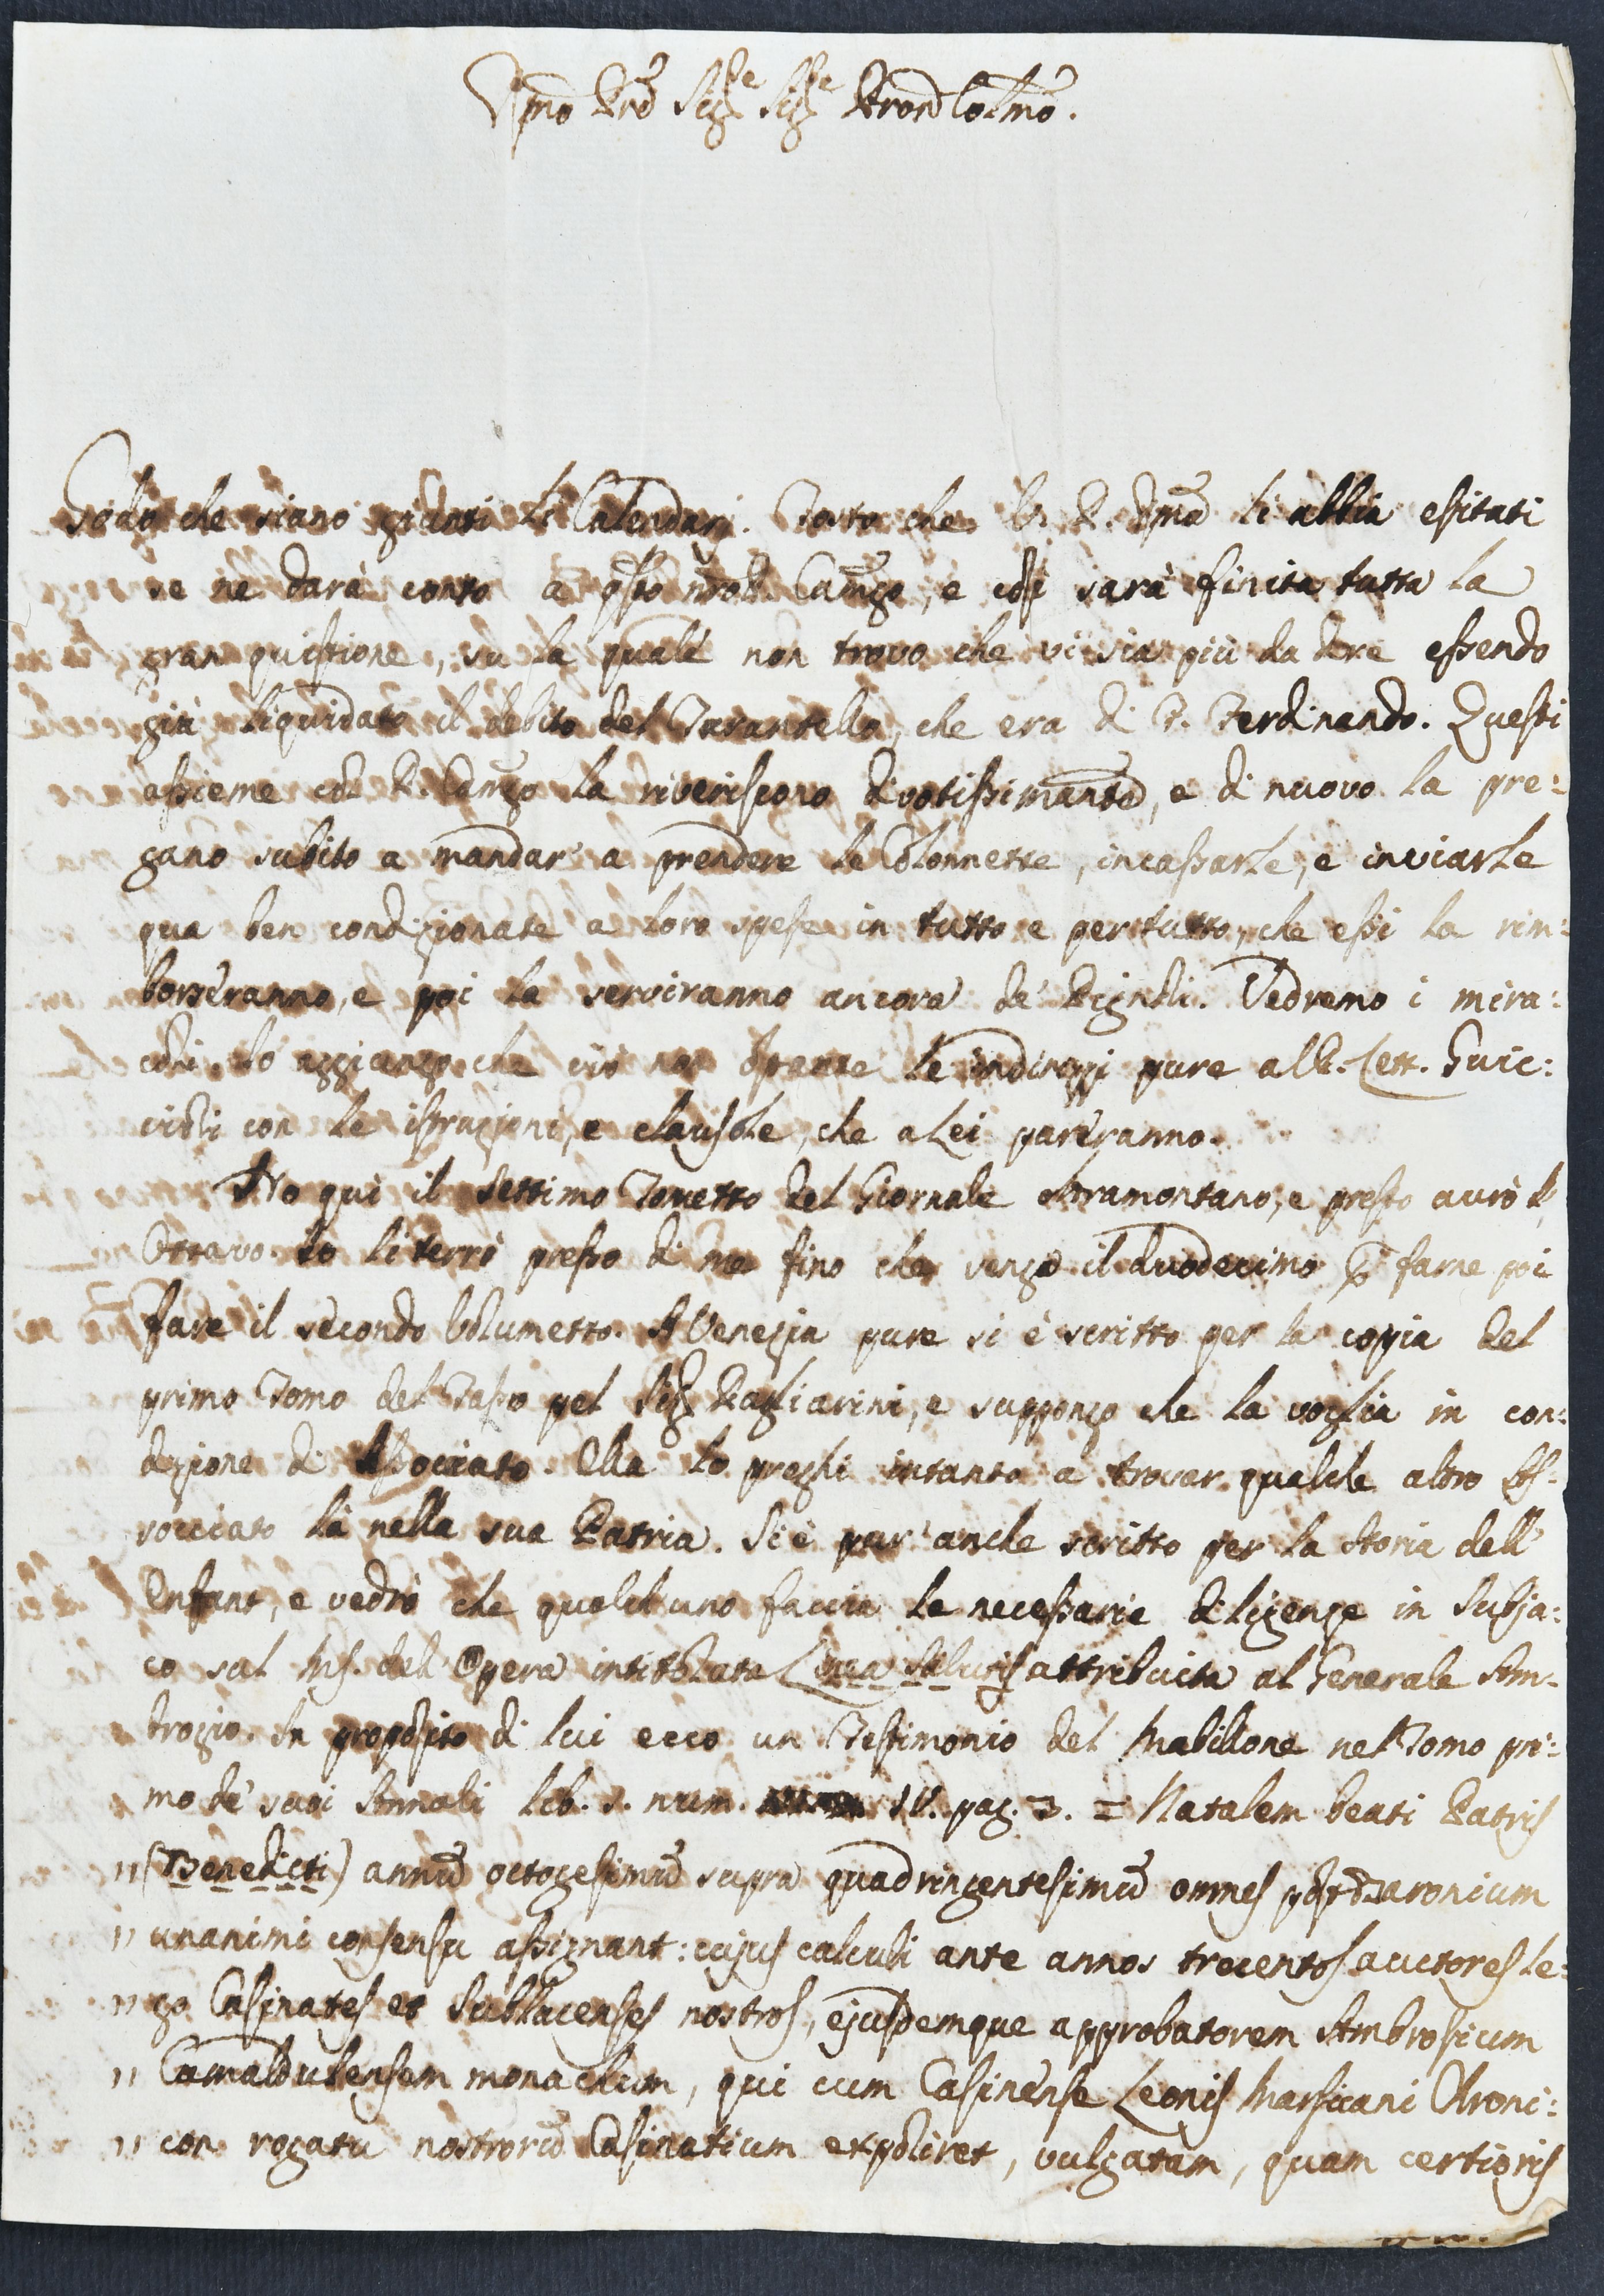 Rmo Pre Sigre Sigre Pron Colmo.
Godo che siano giunti li Calendarj. Tosto che V. P. Rma li abbia esitati
se ne darà conto a qsto nro P. Camgo, e così sarà finita tutta la
gran quistione, su la quale non trovo che vi sia più da dire essendo
già liquidato il debito del Tarantello, che era di P. Ferdinando. Questi
assieme col P. Camgo la riveriscono divotissimante, e di nuovo la pre:
gano subito a mandar' a prendere le Colonnette, incassarle, e inviarle
qua ben condizionate a loro spese in tutto e per tutto, che essi la rim:
borseranno, e poi la serviranno ancora de' Pignoli. Vedremo i mira:
coli. Io aggiungo che ciò non ostante le indirizzi pure al P. Lett. Guic:
cioli con le istruzioni, e clausole, che a Lei pareranno.
Ho qui il settimo Tometto del Giornale oltramontano, e presto avrò l'
Ottavo. Io li terrò presso di me fino che venga il duodecimo per farne poi
fare il secondo Volumetto. A Venezia pure si è scritto per la copia del
primo Tomo del Tasso pel Sigr Pagliarini, e suppongo che la voglia in con:
dizione di Associato. Ella lo preghi intanto a trovar qualche altro As:
sociato là nella sua Patria. Si è pur' anche scritto per la Storia dell'
Enfant, e vedrò che qualchuno faccia le necessarie diligenze in Subja:
co sul Ms. dell'Opera intitolata Linea Salutis attribuita al Generale Am:
brogio. In proposito di lui ecco un Testimonio del Mabillone nel Tomo pri:
mo de' suoi Annali lib. 1. num. IV. pag. 3. = Natalem beati Patris
" (Benedicti) annum octogesimum supra quadringentesimum omnes post Baronium
" unanimi consensu assignant: cujus calculi ante annos trecentos auctores le:
" go Casinates et Sublacenses nostros, ejusdemque approbatorem Ambrosium
" Camaldulensem monachum, qui cum Casinense Leonis Marsicani Chroni:
" con rogatu nostrorum Casinatium expoliret, vulgatam, quam certioris